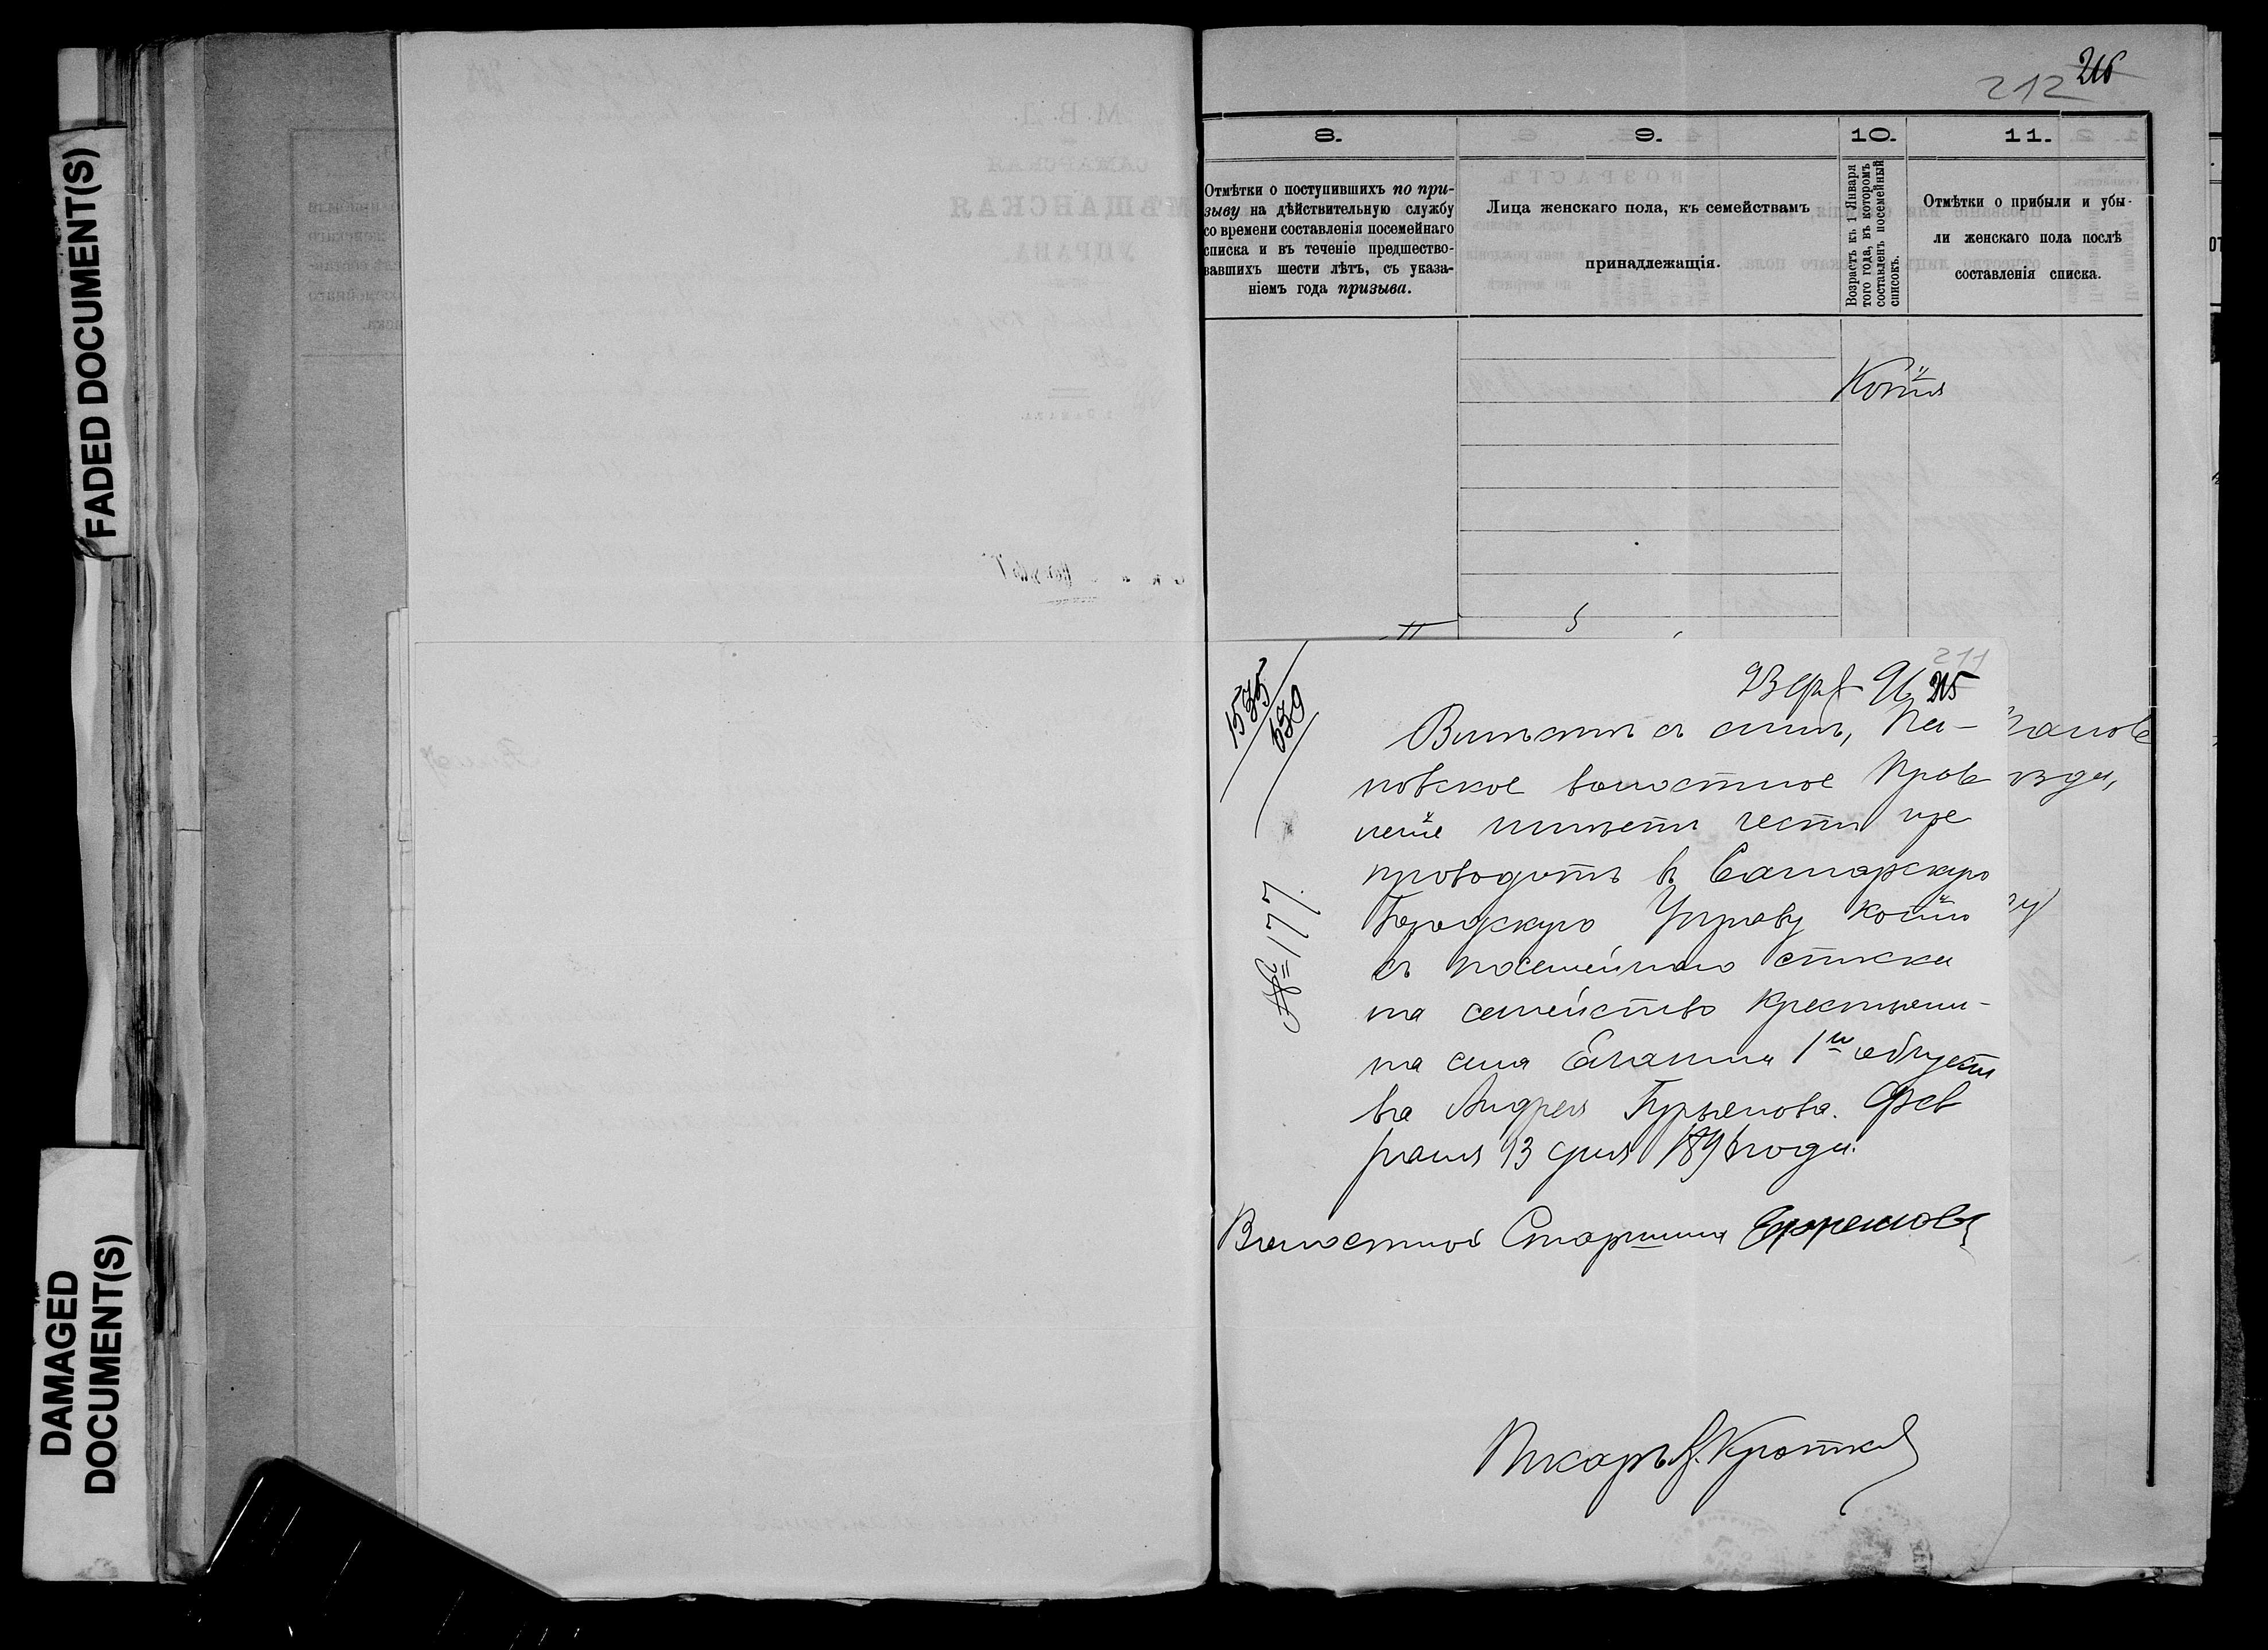 FADED DOCUMENT(S)
DAMAGED
DOCUMENT(S)
М. В. Д.
САМАРСКАЯ
МѢЩАНСКАЯ
УПРАВА.
212 216
8. 9. 10. 11.
Отмѣтки о поступившихъ по при-
зыву на дѣйствительную службу
со времени составленія посемейнаго
списка и въ теченіе предшество-
вавшихъ шести лѣтъ, съ указа-
ніемъ года призыва.
Лица женскаго пола, къ семействамъ
принадлежащія.
Возрастъ къ 1 Января
того года, въ которомъ
составленъ посемейный
списокъ.
Отмѣтки о прибыли и убы-
ли женскаго пола послѣ
составленія списка.
Копія
211
23 фев 96 215
1535
639
№ 177.
Вмѣстѣ съ симъ,
волостное Прав
леніе имѣетъ честь пре
проводить въ Самарскую
Городскую Управу копію
съ посемейнаго списка
на семейство крестьяни-
на села 1го обществ
ва Андрея Гурьянова. Фев
раля 13 дня 1896 года.
Волостной Старшина Ефремовъ
Писарь Кротков